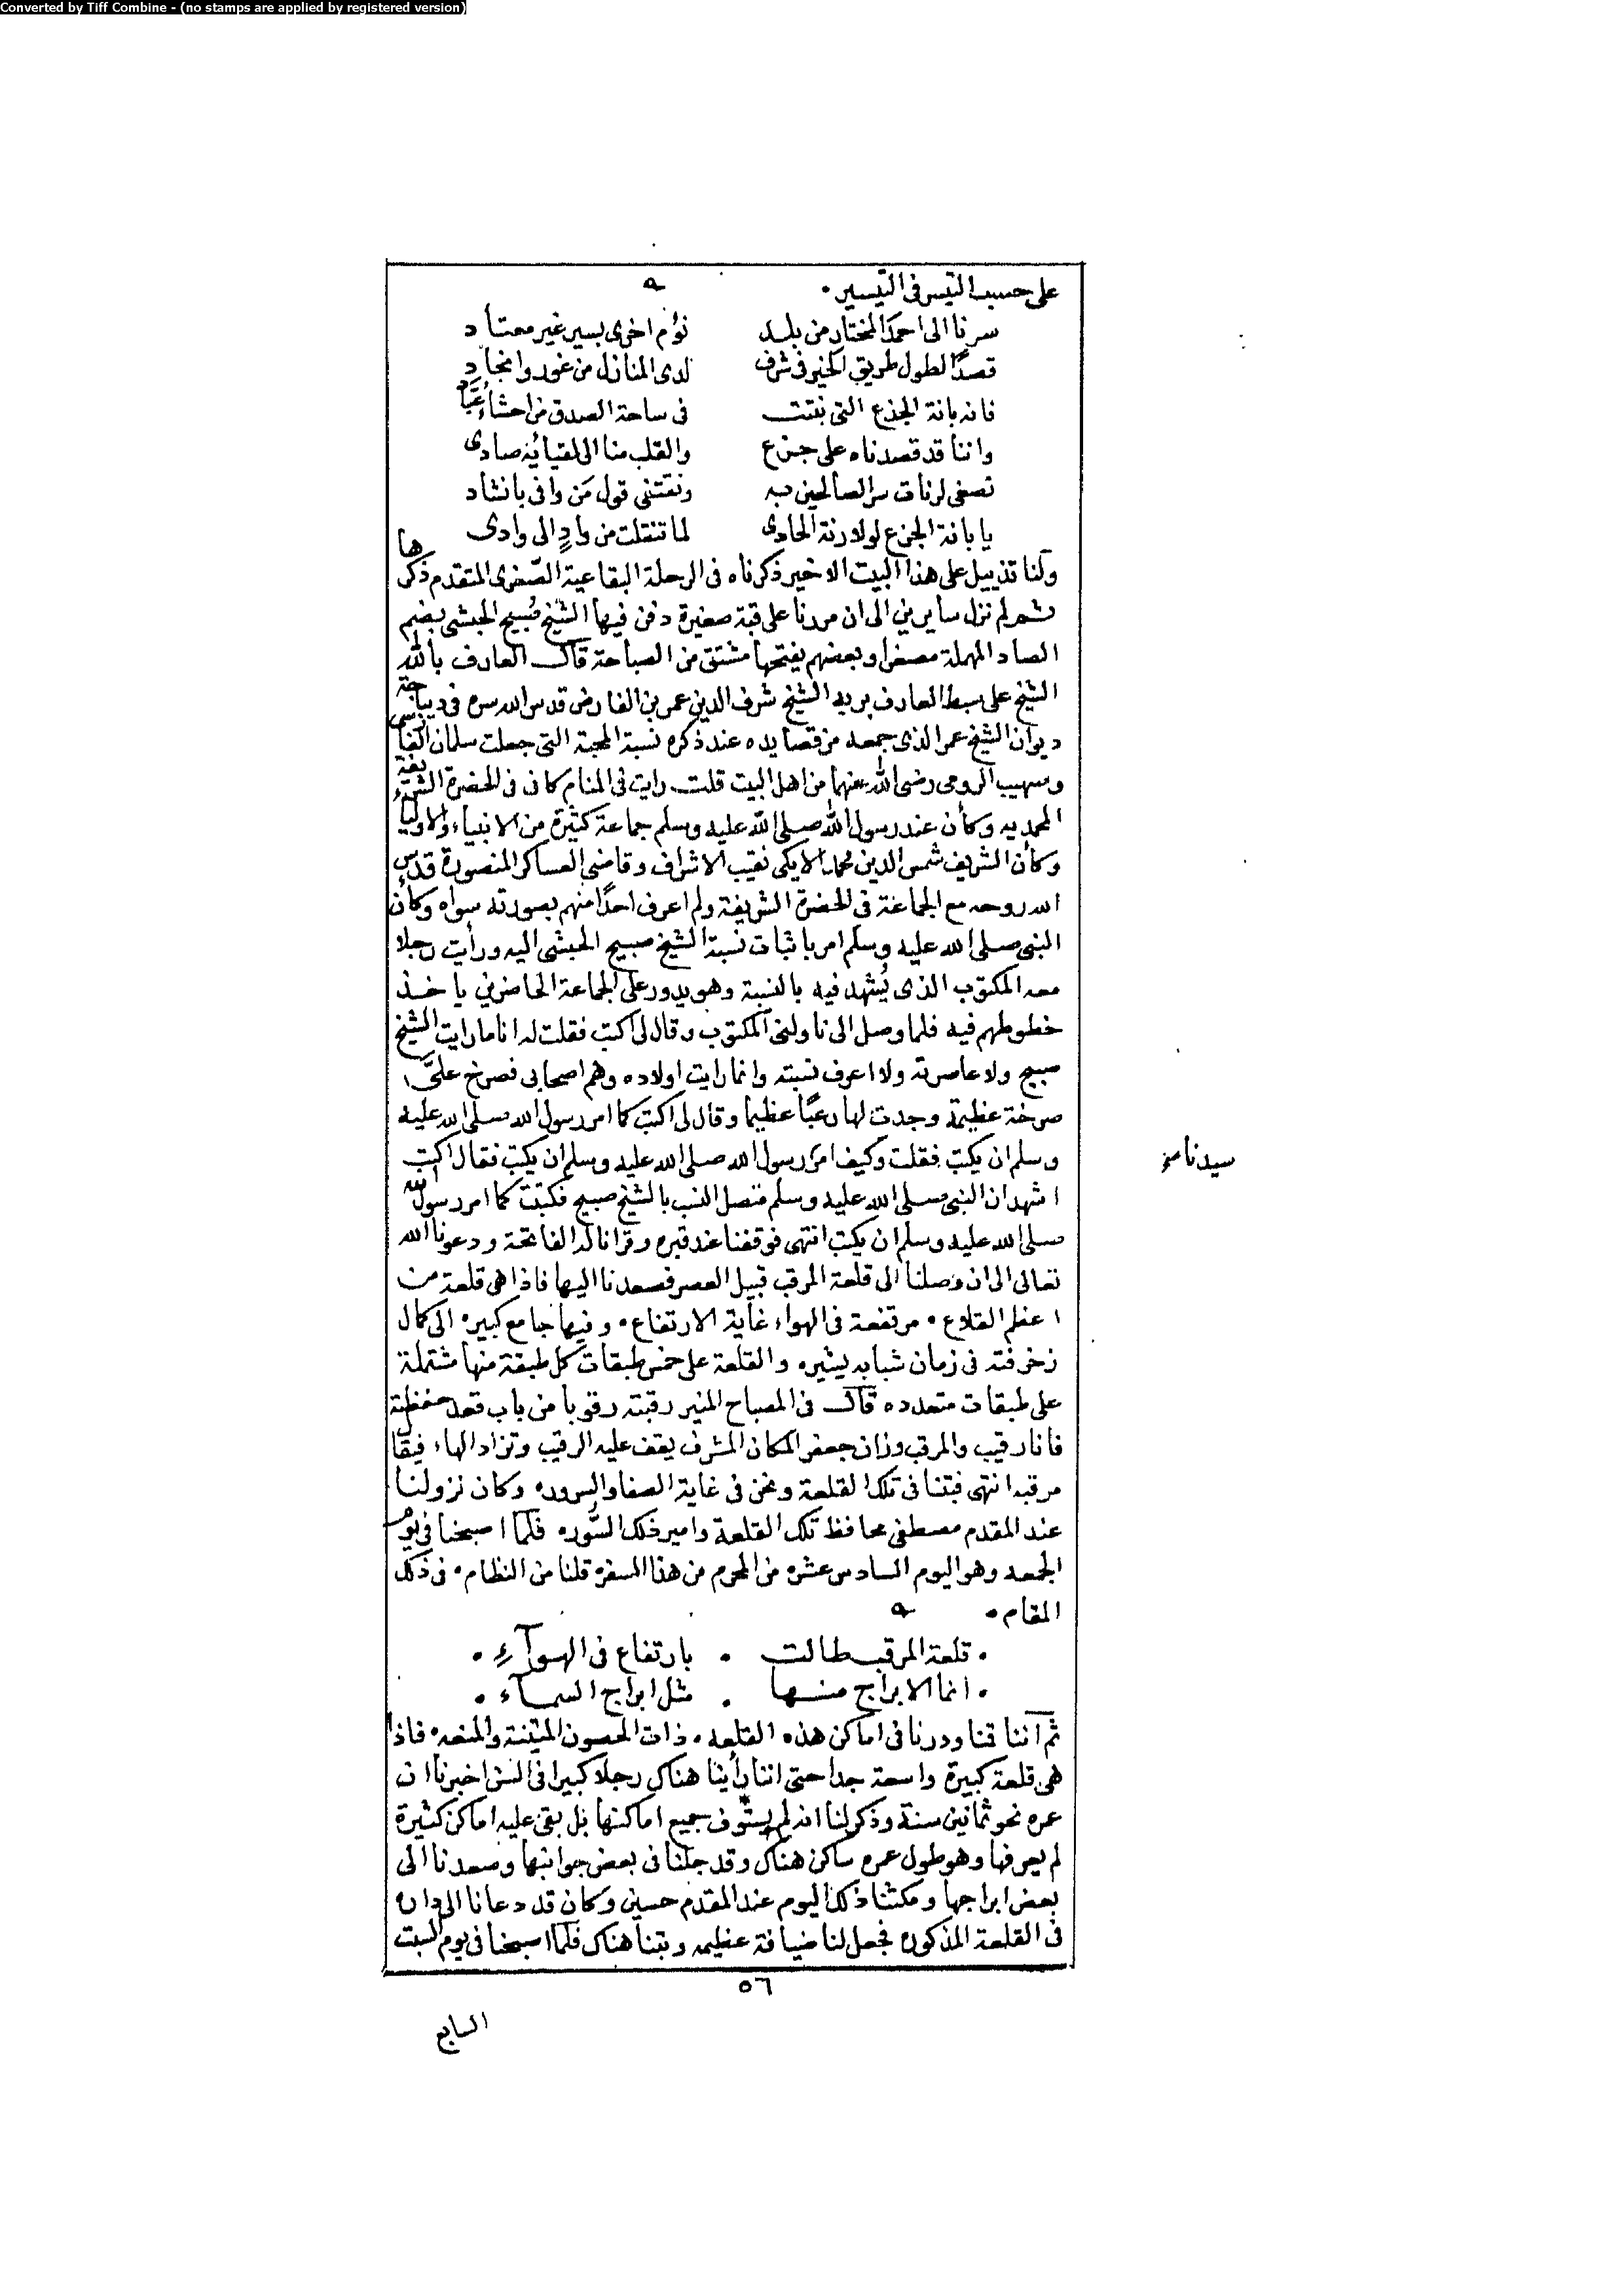 Converted by Tiff Combine - (no stamps are applied by registered version)
على حسب التيسر فى التيسير .
سرنا الى احمد المختار من بلد نؤم اخرى بسير غير معتاد
قصدًا لطول طريق الخير فى شرف لدى المنازل من غور وانجادِ
فانه بانة الجذع التى نبتت فى ساحة الصدق من احشاء عُبَّاد
واننا قد قصدناه على جزع والقلب منا الى لقيائه صادى
نصغى لرنات سر الصالحين به ونقتفى قول مَن وافى بانشاد
يا بانة الجزع لولا رنة الحادى لما تنقلت من وادٍ الى وادى
ولنا تذييل على هذا البيت الاخير ذكرناه فى الرحلة البقاعية الصّغرى المتقدم ذكرها
ثم لم نزل سايرين الى ان مررنا على قبة صغيرة دفن فيها الشيخ صُبيح الحبشى بضم
الصاد المهملة مصغرا وبعضهم يفتحها مشتق من الصباحة قال العارف بالله
الشيخ على سبط العارف بربه الشيخ شرف الدين عمر بن الفارض قدس الله سره فى ديباجة
ديوان الشيخ عمر الذى جمعه من قصايده عند ذكره نسبة المحبة التى جعلت سلمان الفارسى
وصهيب الرومى رضى الله عنهما من اهل البيت قلت رايت فى المنام كانى فى الحضرة الشريفة
المحمديه وكأن عند رسول الله صلى الله عليه وسلم جماعة كثيرة من الانبياء والاوليا
وكأن الشريف شمس الدين محمد الايكى نقيب الاشراف وقاضى العساكر المنصورة قدس
الله روحه مع الجماعة فى الحضرة الشريفة ولم اعرف احدًا منهم بصورته سواه وكأن
النبى صلى الله عليه وسلم امر باثبات نسبة الشيخ صبيح الحبشى اليه ورأيت رجلا
معه المكتوب الذى يُشهد فيه بالنسبة وهو يدور على الجماعة الحاضرين ياخذ
خطوطهم فيه فلما وصل الى ناولنى المكتوب وقال لى اكتب فقلت له انا ما رايت الشيخ
صبيح ولا عاصرته ولا اعرف نسبته وانما رايت اولاده وهم اصحابى فصرخ علىَّ
صرخة عظيمة وجدت لها رعبًا عظيما وقال لى اكتب كما امر رسول الله صلى الله عليه
وسلم ان يكتب فقلت وكيف امر رسول الله صلى الله عليه وسلم ان يكتب فقال اكتب
سيدنا صح
اشهد ان النبى صلى الله عليه وسلم متصل النسب بالشيخ صبيح فكتبت كما امر رسول الله
صلى الله عليه وسلم ان يكتب انتهى فوقفنا عند قبره وقرانا له الفاتحة ودعونا الله
تعالى الى ان وصلنا الى قلعة المرقب قبيل العصر فصعدنا اليها فاذا هى قلعة من
اعظم القلاع . مرتفعة فى الهواء غاية الارتفاع . وفيها جامع كبير . الى كمال
زخرفته فى زمان شبابه يشير . والقلعة على خمس طبقات كل طبقة منها مشتملة
على طبقات متعدده قال فى المصباح المنير رقبته رقوبا من باب قعد حفظته
فانا رقيب والمرقب وزان جعفر المكان المشرف يقف عليه الرقيب وتزاد الهاء فيقال
مرقبه انتهى فبتنا فى تلك القلعة ونحن فى غاية الصفا والسرور . وكان نزولنا
عند المقدم مصطفى محافظ تلك القلعة وامير ذلك السُّور . فلما اصبحنا فى يوم
الجمعه وهو اليوم السادس عشر من المحرم من هذا السفر . قلنا من النظام . فى ذلك
المقام .
. قلعة المرقب طالت . بارتفاع فى الهوآءِ .
. انما الابراج منها . مثل ابراج السمآء .
ثم اننا قمنا ودرنا فى اماكن هذه القلعه . ذات الحصون المتينة والمنعه . فاذا
هى قلعة كبيرة واسعة جدا حتى اننا رأينا هناك رجلا كبيرا فى السن اخبرنا ان
عمره نحو ثمانين سنة وذكر لنا انه لم يستوف جميع اماكنها بل بقى عليه اماكن كثيرة
لم يعرفها وهو طول عمره ساكن هناك وقد جلنا فى بعض جوانبها وصعدنا الى
بعض ابراجها ومكثنا ذلك اليوم عند المقدم حسين وكان قد دعانا الى داره
فى القلعة المذكوره فجعل لنا ضيافة عظيمه وبتنا هناك فلما اصبحنا فى يوم السبت
٥٦
السابع